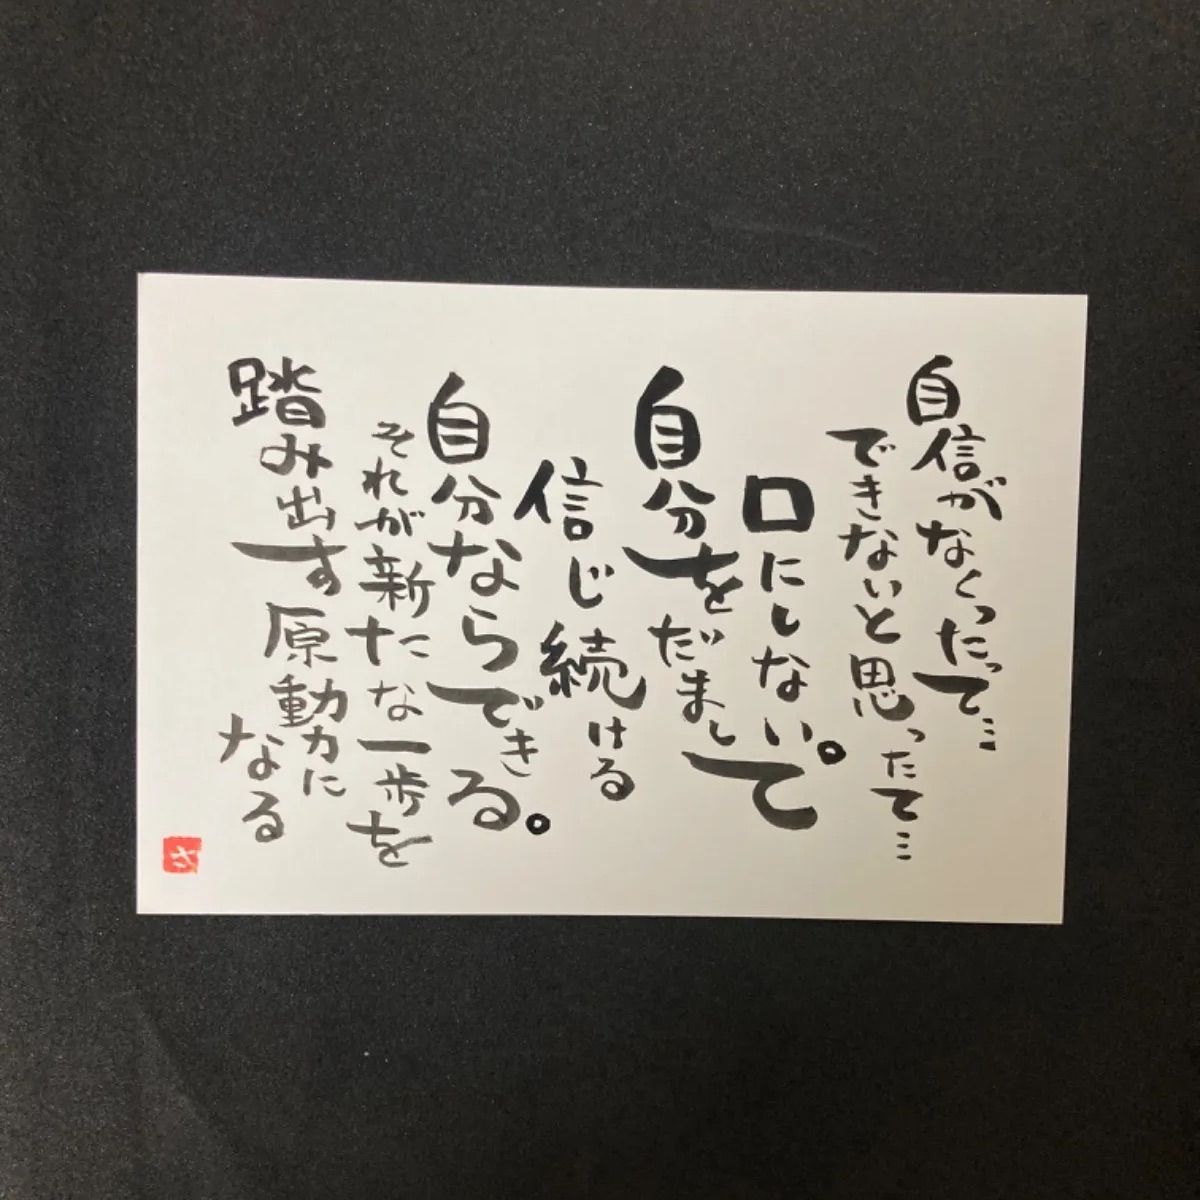 自信がなくったって…
できないと思ったて…
口にしない。
自分をだまして
信じ続ける
自分ならできる。
それが新たな一歩を
踏み出す原動力に
なる
さ